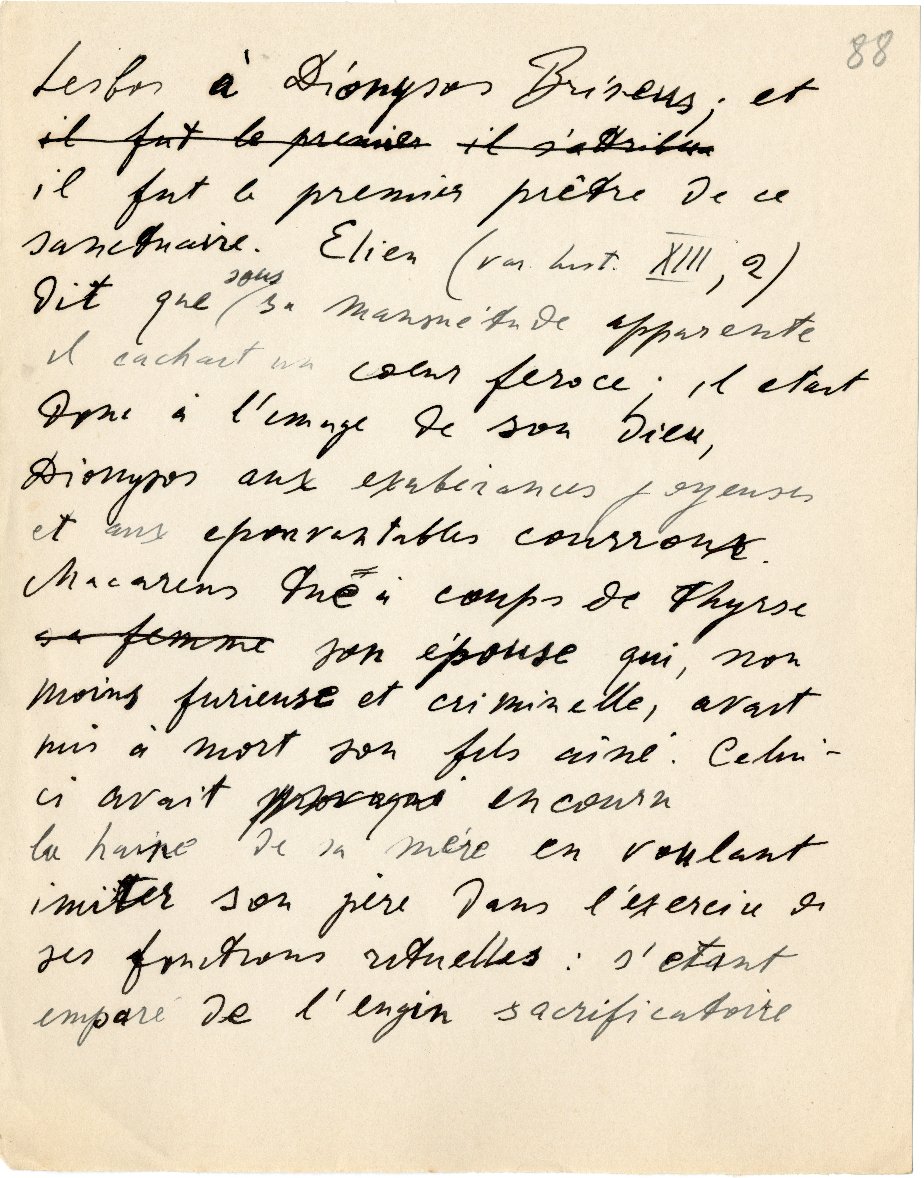 88
Lesbos à Dionysos Briseus; et
il fut le premier il s'attribua
il fut le premier prêtre de ce
sanctuaire. Elien (var. hist. XIII, 2)
sous
dit que sa mansuétude apparente
il cachait un cœur feroce; il etait
donc à l'image de son Dieu,
Dionysos aux exubérances joyeuses
et aux epouvantables courroux.
Macareus tue à coups de thyrse
sa femme son épouse qui, non
moins furieuse et criminelle, avait
mis à mort son fils aîné. Celui-
ci avait provoqué encouru
la haine de sa mère en voulant
imiter son père dans l'exercice de
ses fonctions rituelles : s'etant
emparé de l'engin sacrificatoire